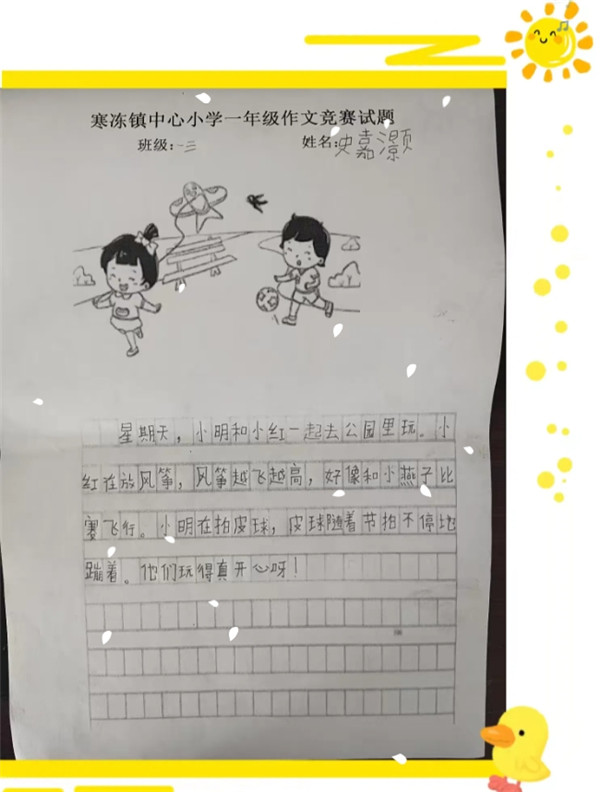 寒冻镇中心小学一年级作文竞赛试题
班级:一三 姓名:史嘉灏
星期天，小明和小红一起去公园里玩。小
红在放风筝，风筝越飞越高，好像和小燕子比
赛飞行。小明在拍皮球，皮球随着节拍不停地
蹦着。他们玩得真开心呀！